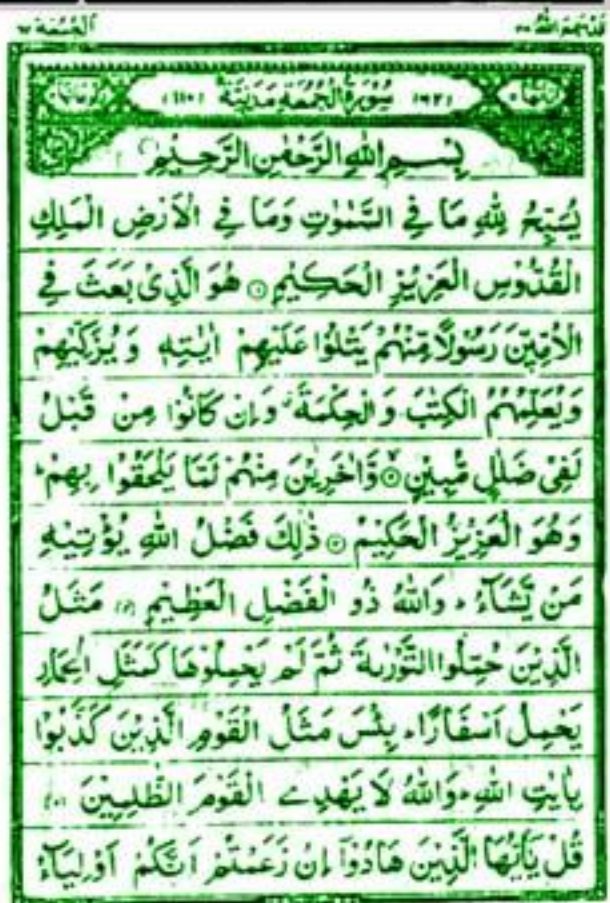 الجمعة ٦٢
قد سمع الله ٢٨
سُوْرَةُ الْجُمُعَةِ مَدَنِيَّةٌ (١١٠)
بِسْمِ اللهِ الرَّحْمٰنِ الرَّحِيْمِ
يُسَبِّحُ لِلّٰهِ مَا فِي السَّمٰوٰتِ وَمَا فِي الْاَرْضِ الْمَلِكِ
الْقُدُّوْسِ الْعَزِيْزِ الْحَكِيْمِ ۝١ هُوَ الَّذِيْ بَعَثَ فِي
الْاُمِّيّٖنَ رَسُوْلًا مِّنْهُمْ يَتْلُوْا عَلَيْهِمْ اٰيٰتِهٖ وَيُزَكِّيْهِمْ
وَيُعَلِّمُهُمُ الْكِتٰبَ وَالْحِكْمَةَ ۗ وَاِنْ كَانُوْا مِنْ قَبْلُ
لَفِيْ ضَلٰلٍ مُّبِيْنٍ ۝٢ وَّاٰخَرِيْنَ مِنْهُمْ لَمَّا يَلْحَقُوْا بِهِمْ ؕ
وَهُوَ الْعَزِيْزُ الْحَكِيْمُ ۝٣ ذٰلِكَ فَضْلُ اللهِ يُؤْتِيْهِ
مَنْ يَّشَآءُ ؕ وَاللهُ ذُو الْفَضْلِ الْعَظِيْمِ ۝٤ مَثَلُ
الَّذِيْنَ حُمِّلُوا التَّوْرٰىةَ ثُمَّ لَمْ يَحْمِلُوْهَا كَمَثَلِ الْحِمَارِ
يَحْمِلُ اَسْفَارًا ؕ بِئْسَ مَثَلُ الْقَوْمِ الَّذِيْنَ كَذَّبُوْا
بِاٰيٰتِ اللهِ ؕ وَاللهُ لَا يَهْدِي الْقَوْمَ الظّٰلِمِيْنَ ۝٥
قُلْ يٰٓاَيُّهَا الَّذِيْنَ هَادُوْٓا اِنْ زَعَمْتُمْ اَنَّكُمْ اَوْلِيَآءُ